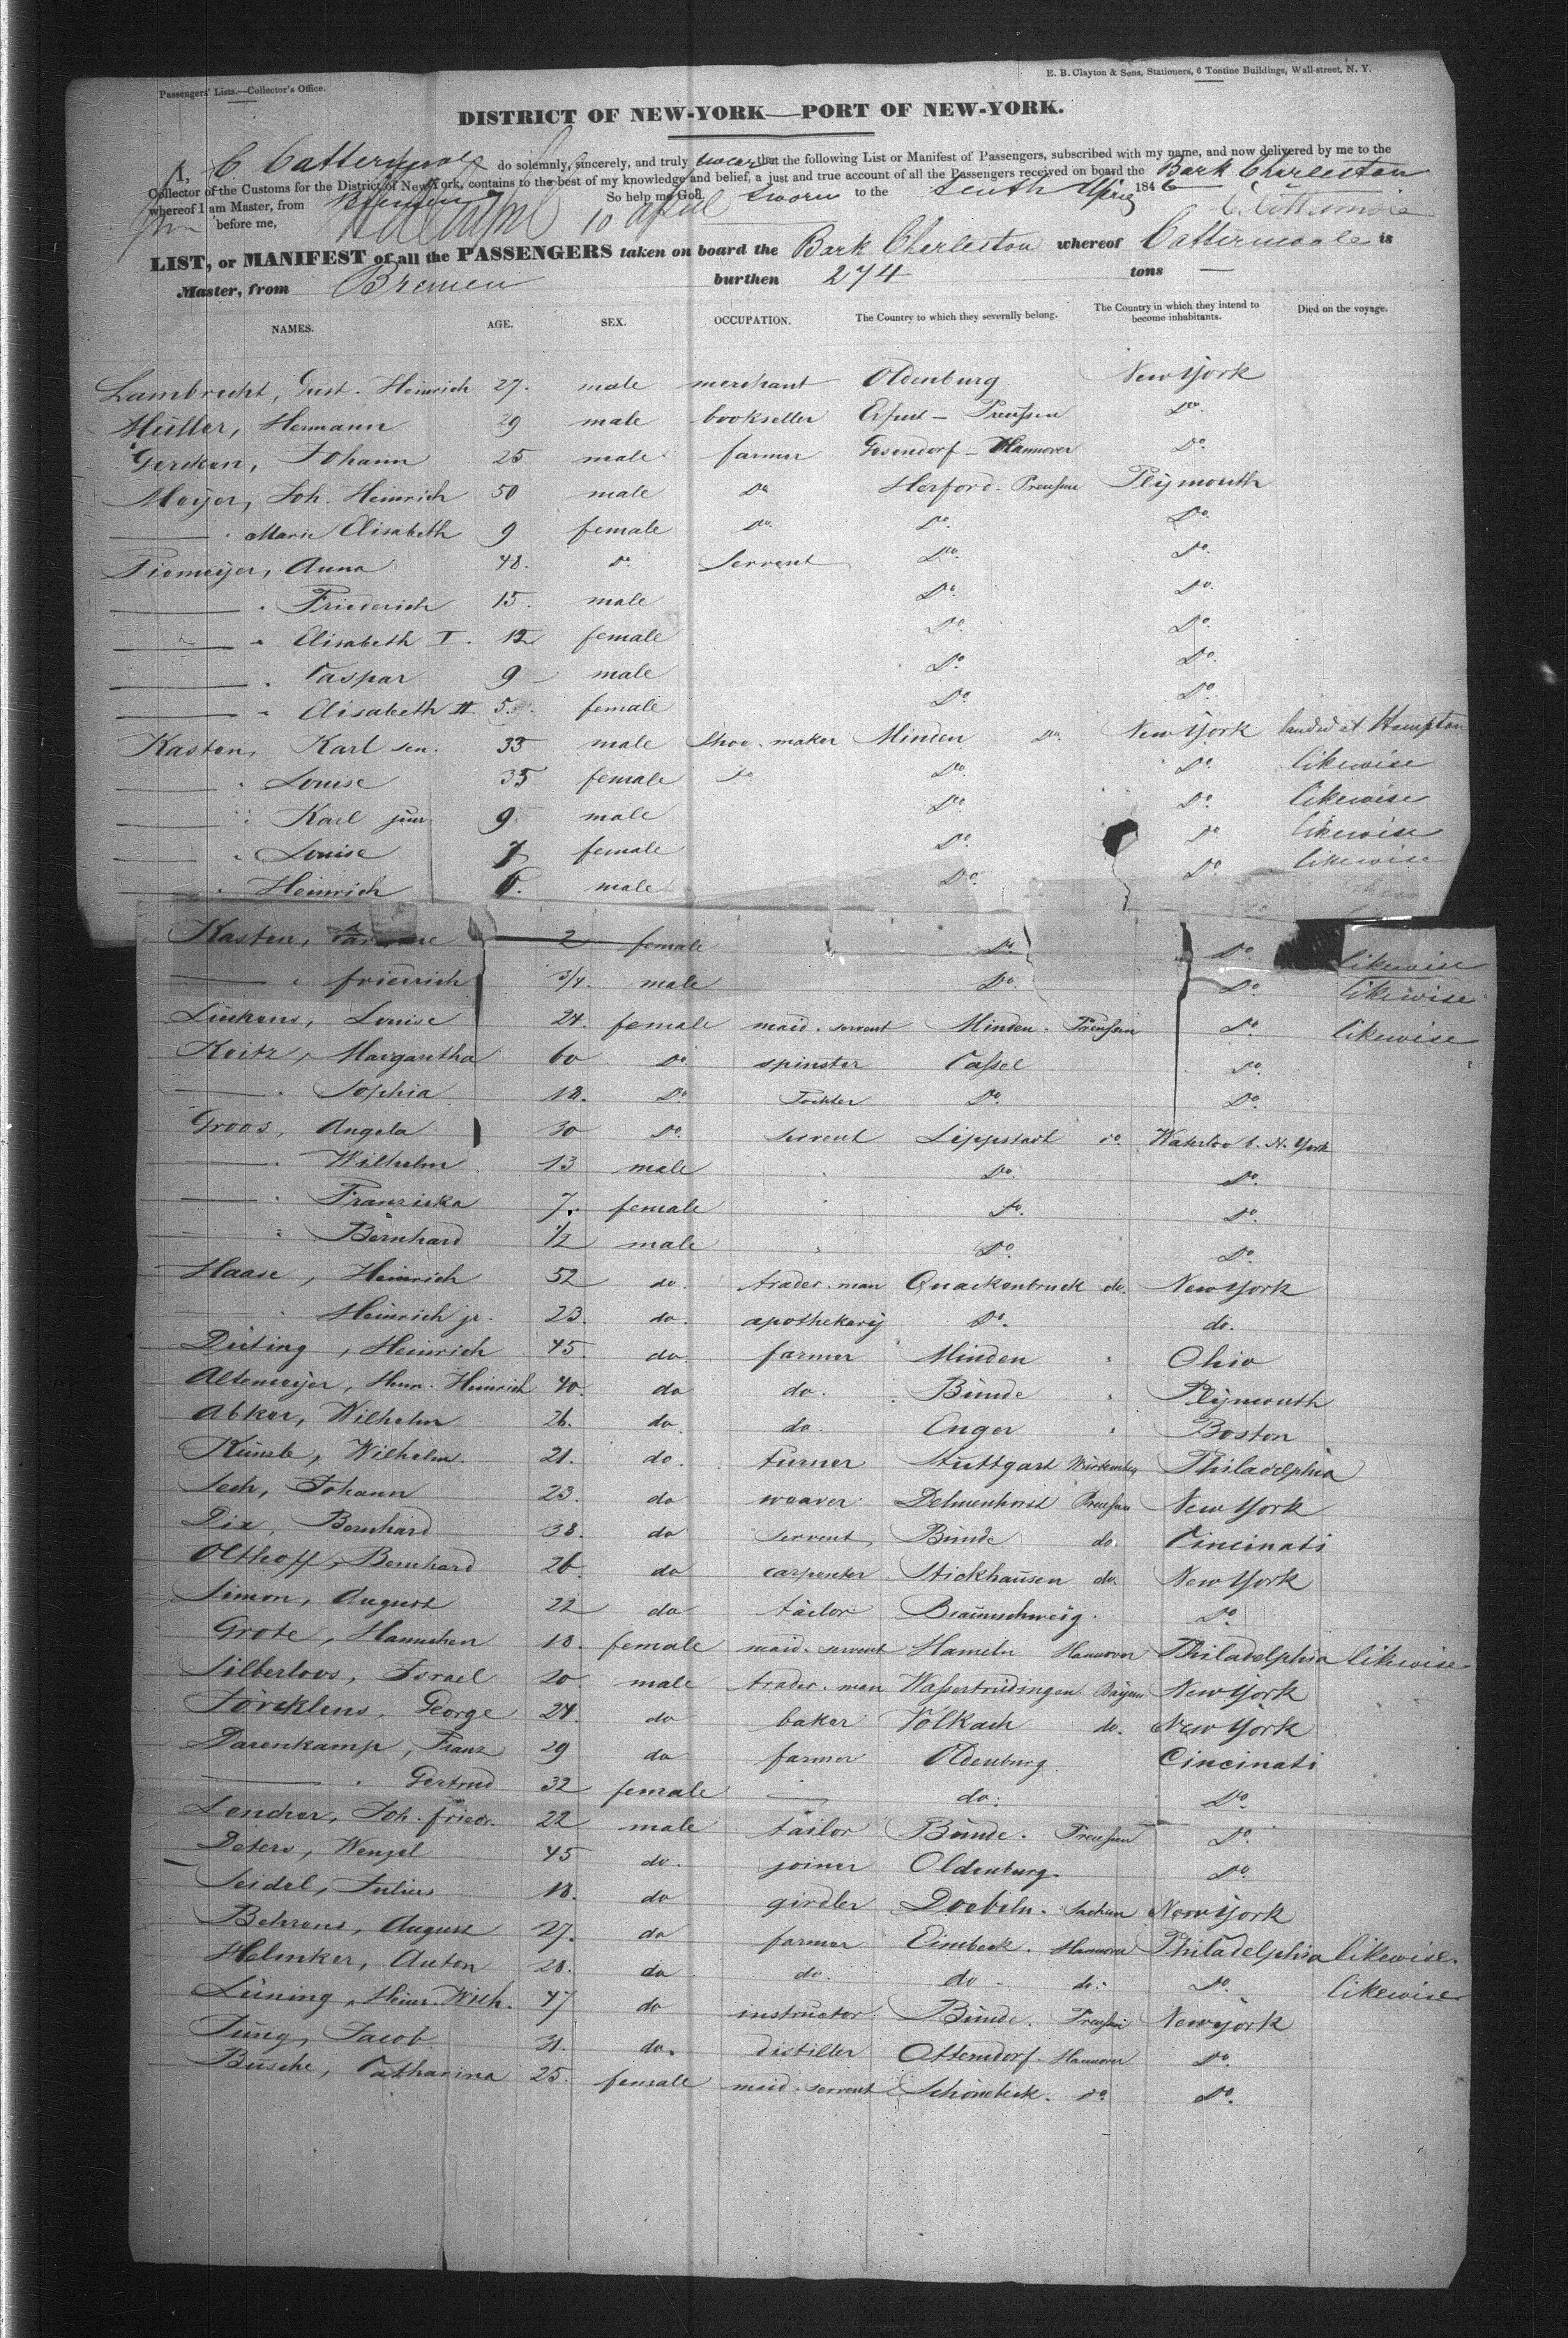 Passengers' Lists.—Collector's Office.
E. B. Clayton & Sons, Stationers, 6 Tontine Buildings, Wall-street, N. Y.
DISTRICT OF NEW-YORK—PORT OF NEW-YORK.
I, C Cattermole do solemnly, sincerely, and truly swear that the following List or Manifest of Passengers, subscribed with my name, and now delivered by me to the
Collector of the Customs for the District of New York, contains to the best of my knowledge and belief, a just and true account of all the Passengers received on board the Bark Charleston
whereof I am Master, from Bremen So help me God. Sworn to the tenth April 1846
before me, 10 april
LIST, or MANIFEST of all the PASSENGERS taken on board the Bark Charleston whereof Cattermoole is
Master, from Bremen burthen 274 tons —
NAMES. AGE. SEX. OCCUPATION. The Country to which they severally belong. The Country in which they intend to become inhabitants. Died on the voyage.
Lambrecht, Gust. Heinrich 27. male merchant Oldenburg New York
Müller, Hermann 29 male bookseller Erfurt — Preußen Do
Gercken, Johann 25 male farmer Gesendorf — Hannover Do.
Meijer, Joh. Heinrich 50 male Do Herford — Preußen Plijmouth
— " Marie Elisabeth 9 female Do. Do. Do.
Piemeijer, Anna 48. Do. Servent Do. Do.
— " Friederich 15. male Do. Do.
— " Elisabeth I. 12 female Do. Do.
— " Caspar 9 male Do. Do.
— " Elisabeth II. 5. female Do. Do.
Kasten, Karl sen. 33 male Shoe-maker Minden Do. New York landed at Hampton
— " Louise 35 female Do Do. Do likewise
— " Karl jun 9 male Do. Do. likewise
— " Louise 7 female Do. Do likewise
— " Heinrich 6. male Do. Do. likewise
Kasten, 2 female Do. Do. likewise
— " friedrich 3/4. male Do. Do. likewise
Lückens, Louise 24. female maid-servent Minden. Preußen Do. likewise
Keitz, Margaretha 60 Do. spinster Caßel Do.
— " Sophia 18. Do. Tochter Do. Do.
Groos, Angela 30 Do. servent Lippstadt do. Waterloo b. N. York
— " Wilhelm 13 male " Do. Do.
— " Franziska 7. female " Do. Do.
— " Bernhard 1/2 male " Do. Do
Haase, Heinrich 52 do. trades-man Quackenbruck do. New York
— " Heinrich jr. 23. do. apothekarij Do. do.
Düting, Heinrich 45. do. farmer Minden " Ohio
Altemeijer, Herm. Heinrich 40. do do. Bünde " Plijmouth
Abker, Wilhelm 26. do. do. Enger " Boston
Künzle, Wilhelm. 21. do. turner Stuttgart Würtemberg Philadelphia
Sech, Johann 23. do weaver Delmenhorst Preußen New York
Dix, Bernhard 38. do servent Bünde do. Cincinati
Olthoff, Bernhard 26. do carpenter Stickhausen do. New York
Simon, August 22 do tailor Braunschweig. Do
Grote, Hannchen 18. female maid-servent Hameln Hannover Philadelphia likewise
Silberloos, Israel 20. male trades-man Waßertrüdingen Baijern New York
Förcklens, George 24. do baker Volkach do. New York
Darenkamp, Franz 29 do farmer Oldenburg. Cincinati
— " Gertrud 32 female — do. Do.
Lencker, Joh. friedr. 22 male tailor Bünde. Preußen Do.
Deters, Wenzel 45 do. joiner Oldenburg. Do.
Seidel, Julius 18. do girdler Doebeln. Sachsen New York
Behrens, August 27. do farmer Eimbeck. Hannover Philadelphia likewise.
Helmker, Anton 28. do do. do — do. Do. likewise
Lüning, Heinr. Wilh. 47 do instructor Bünde. Preußen New York
Jung, Jacob 31. do. distiller Otterndorf. Hannover Do.
Busche, Catharina 25. female maid-servent Schönebeck. do. Do.